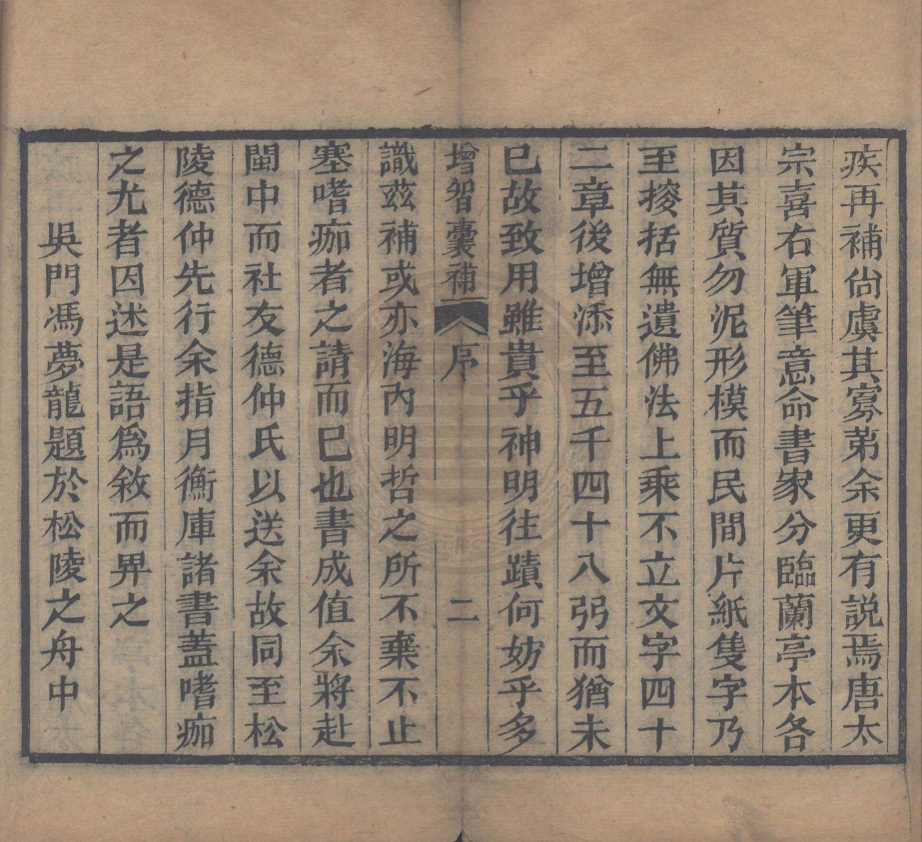 疾再補尙虞其寡第余更有説焉唐太
宗喜右軍筆意命書家分臨蘭亭本各
因其質勿泥形模而民間片紙隻字乃
至搜括無遺佛法上乘不立文字四十
二章後增添至五千四十八弜而猶未
已故致用雖貴乎神明往蹟何妨乎多
增智囊補 序 二
識茲補或亦海内明哲之所不棄不止
塞嗜痂者之請而已也書成值余將赴
閩中而社友德仲氏以送余故同至松
陵德仲先行余指月衡庫諸書蓋嗜痂
之尤者因述是語爲敘而畀之
吳門馮夢龍題於松陵之舟中